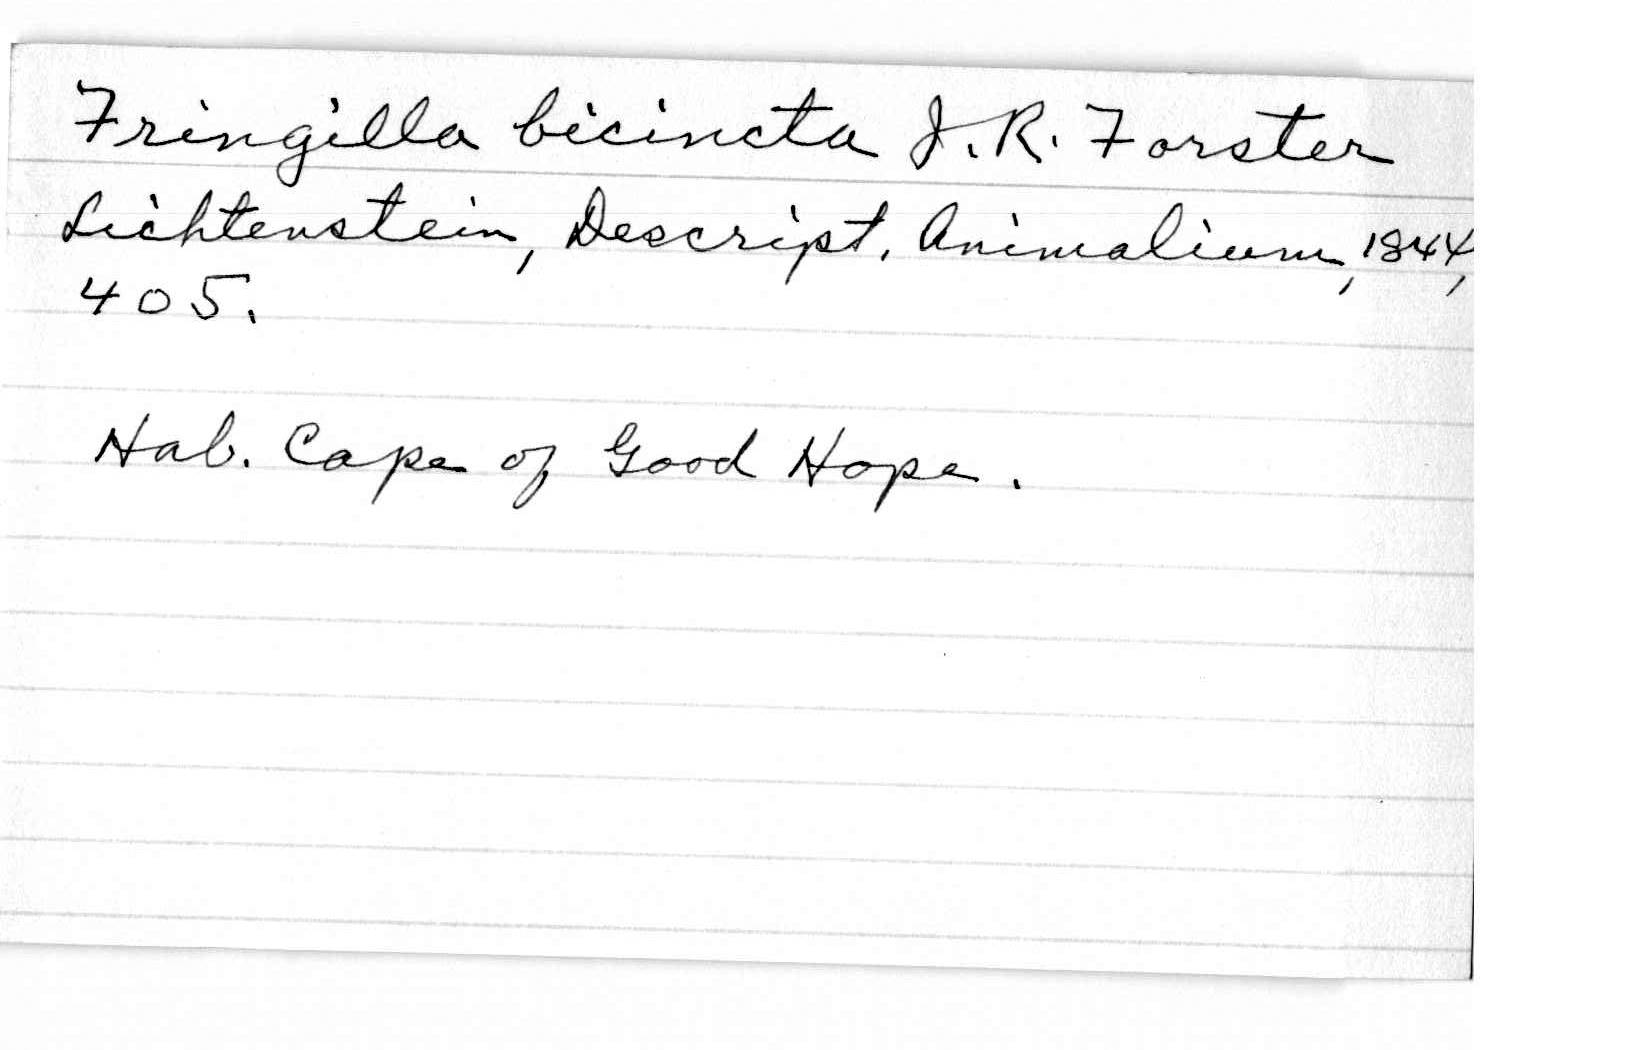 Fringilla bicincta J. R. Forster
Lichtenstein, Descript. Animalium, 1844,
405.
Hab. Cape of Good Hope.